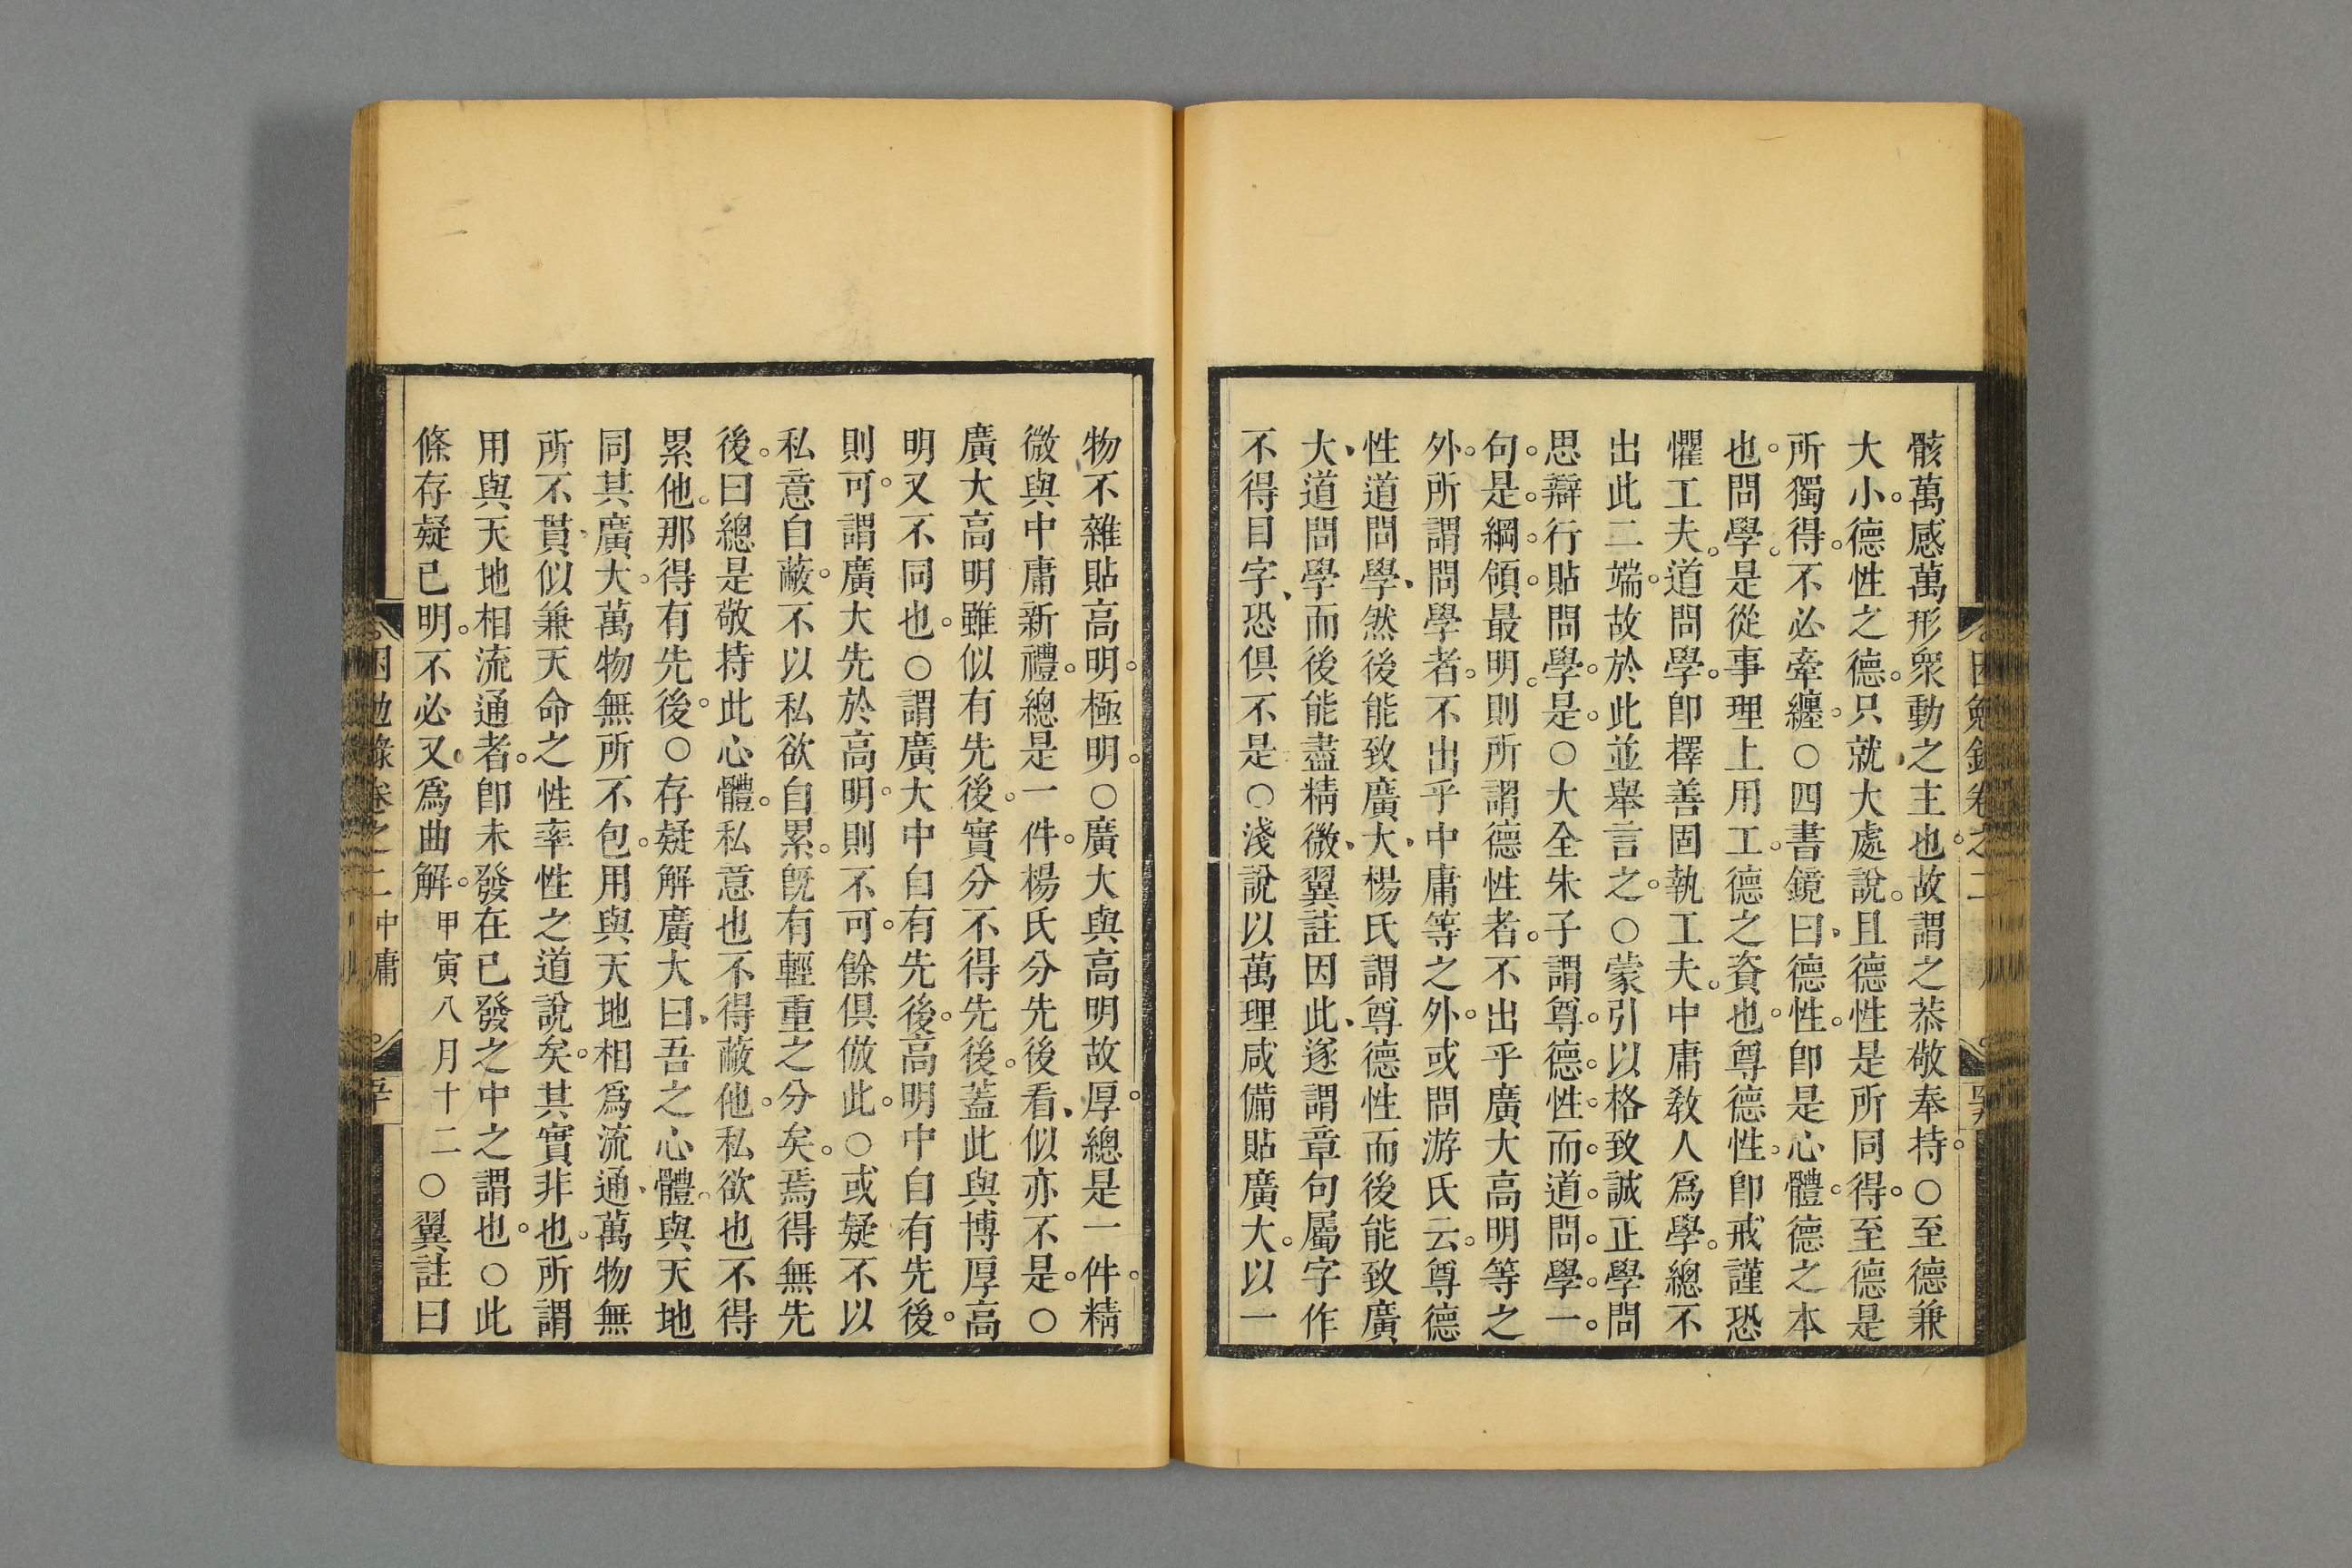 骸萬感萬形衆動之主也故謂之恭敬奉持○至德兼
大小德性之德只就大處說且德性是所同得至德是
所獨得不必牽纏○四書鏡曰德性卽是心體德之本
也問學是從事理上用工德之資也尊德性卽戒謹恐
懼工夫道問學卽擇善固執工夫中庸教人爲學總不
出此二端故於此並舉言之○蒙引以格致誠正學問
思辯行貼問學是○大全朱子謂尊德性而道問學一
句是綱領最明則所謂德性者不出乎廣大高明等之
外所謂問學者不出乎中庸等之外或問游氏云尊德
性道問學然後能致廣大楊氏謂尊德性而後能致廣
大道問學而後能盡精微翼註因此遂謂章句屬字作
不得目字恐俱不是○淺說以萬理咸備貼廣大以一
物不雜貼高明極明○廣大與高明故厚總是一件精
微與中庸新禮總是一件楊氏分先後看似亦不是○
廣大高明雖似有先後實分不得先後蓋此與博厚高
明又不同也○謂廣大中自有先後高明中自有先後
則可謂廣大先於高明則不可餘俱倣此○或疑不以
私意自蔽不以私欲自累旣有輕重之分矣焉得無先
後曰總是敬持此心體私意也不得蔽他私欲也不得
累他那得有先後○存疑解廣大曰吾之心體與天地
同其廣大萬物無所不包用與天地相爲流通萬物無
所不貫似兼天命之性率性之道說矣其實非也所謂
用與天地相流通者卽未發在已發之中之謂也○此
條存疑已明不必又爲曲解甲寅八月十二○翼註曰
困勉錄卷之二 中庸 五十